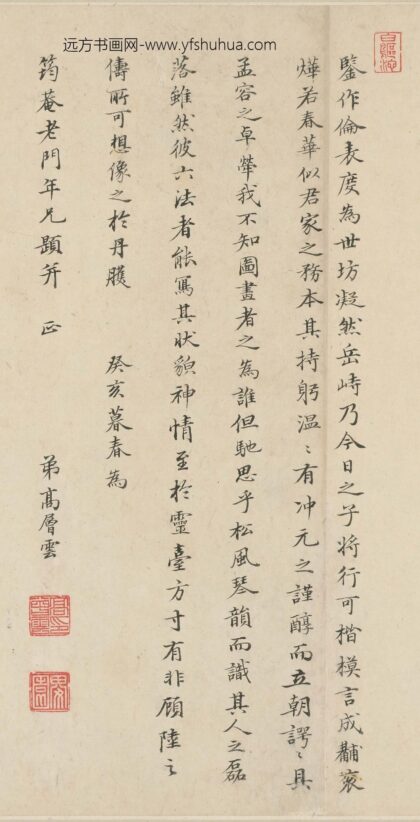 远方书画网-www.yfshuhua.com
鑒作倫表度為世坊凝然岳峙乃今日之子將行可楷模言成黼袞
燁若春華似君家之務本其持躬溫〻有冲元之謹醇而立朝諤〻具
孟容之卓犖我不知圖畫者之為誰但馳思乎松風琴韻而識其人之磊
落雖然彼六法者能寫其狀貌神情至於靈臺方寸有非顧陸之
儔所可想像之於丹雘
癸亥暮春為
筠菴老門年兄題并 正
弟高層雲